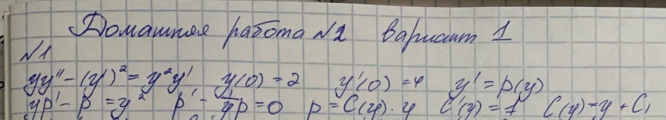 Домашняя работа №2 Вариант 1
№1
yy'' - (y')² = y²y' y(0) = 2 y'(0) = 4 y' = p(y)
yp' - p = y² p' - 1/y p = 0 p = C(y)·y C'(y) = 1 C(y) = y + C₁